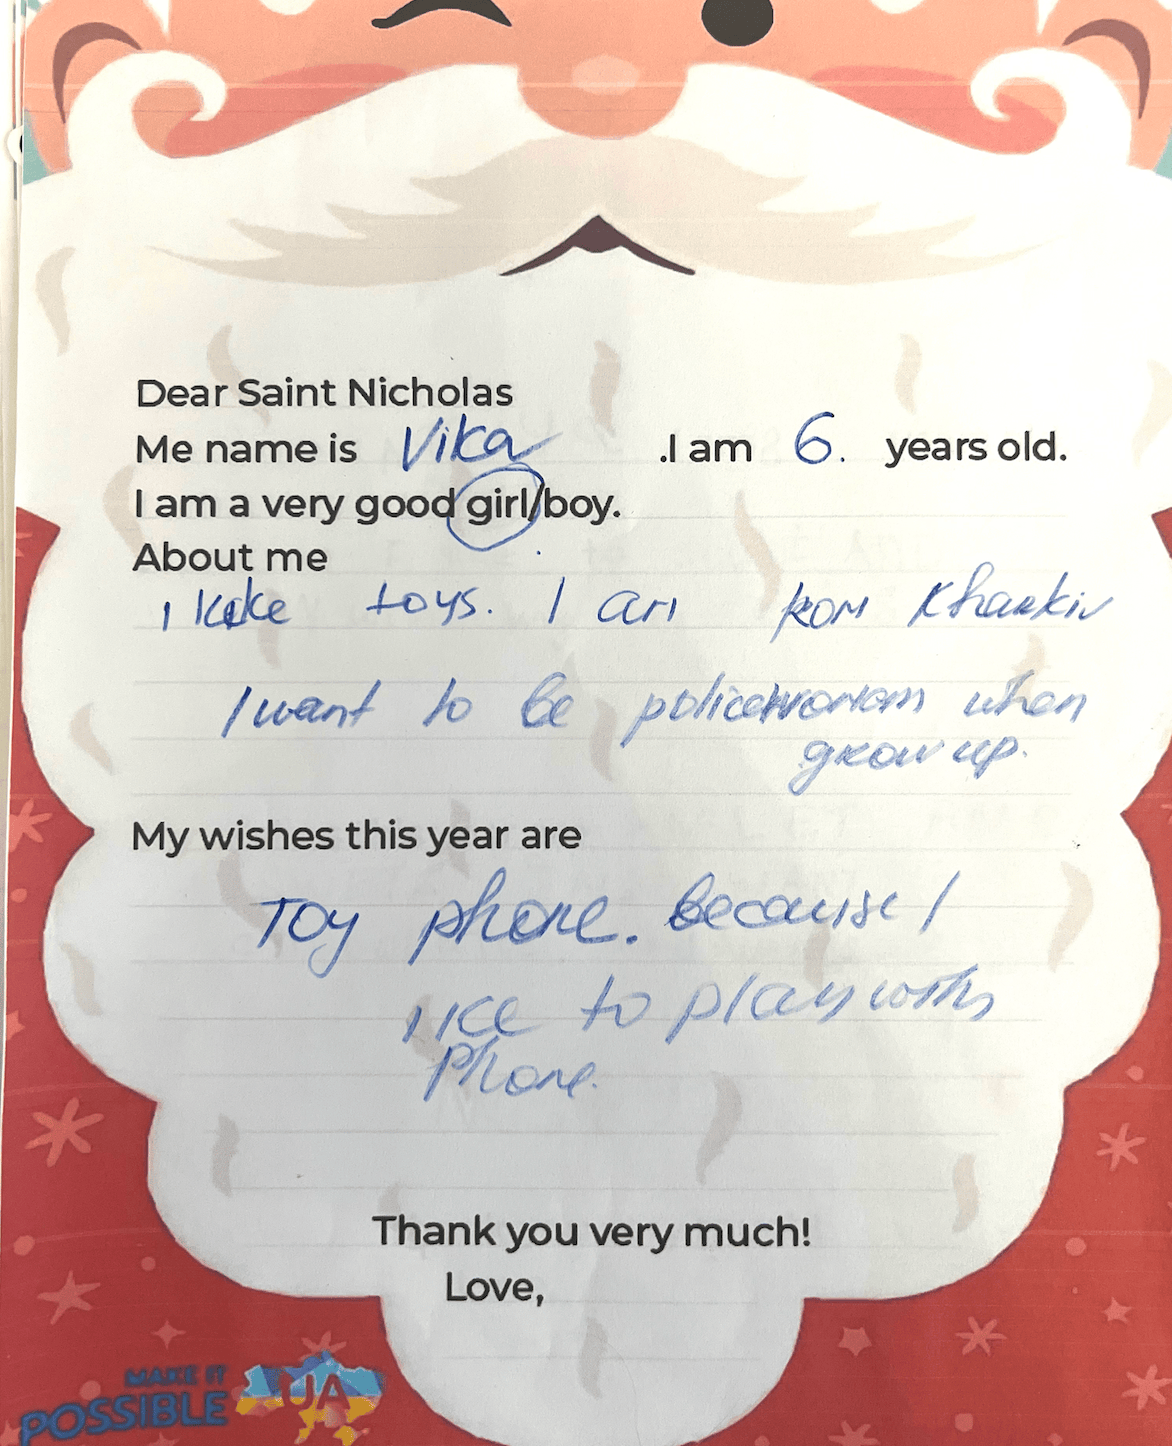 Dear Saint Nicholas
Me name is Vika .I am 6. years old.
I am a very good girl/boy.
About me
I like toys. I am from Kharkiv
I want to be policewoman when
grow up.
My wishes this year are
Toy phone. Because I
like to play with
phone.
Thank you very much!
Love,
MAKE IT
POSSIBLE UA